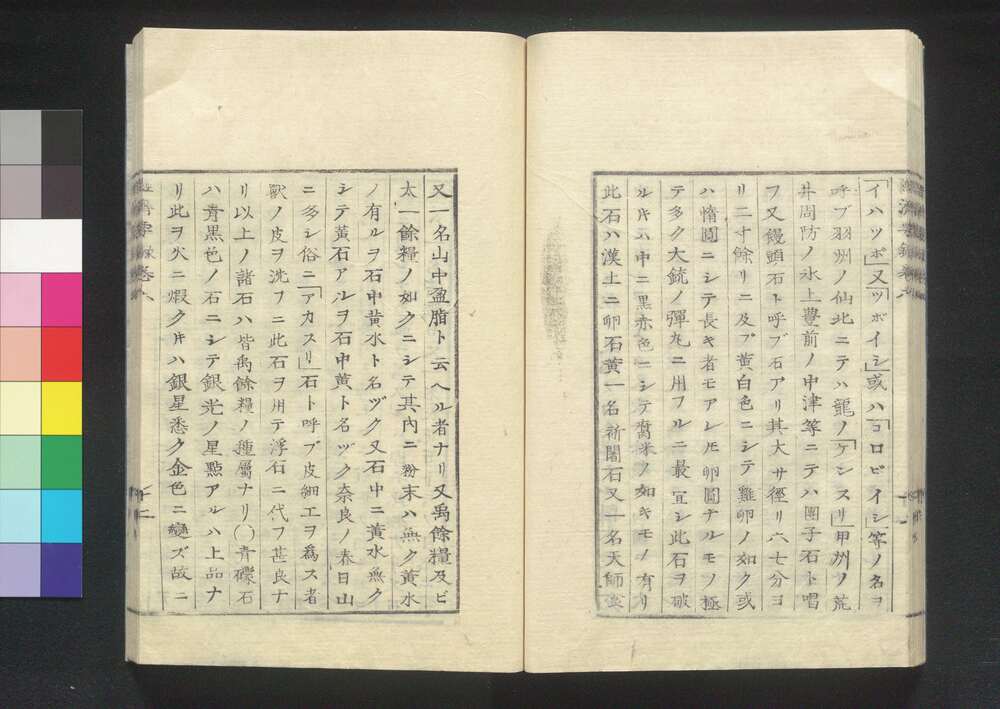 「イハツボ」又「ツボイシ」或ハ「コロビイシ」等ノ名ヲ
呼ブ羽州ノ仙北ニテハ龍ノ「ケンスリ」甲州ノ荒
井周防ノ氷上豊前ノ中津等ニテハ團子石ト唱
フ又饅頭石ト呼ブ石アリ其大サ徑リ六七分ヨ
リ二寸餘リニ及ブ黄白色ニシテ雞卵ノ如ク或
ハ橢圓ニシテ長キ者モアレモ卵圓ナルモノ極
テ多ク大銃ノ彈丸ニ用フルニ最宜シ此石ヲ破
ル片ハ中ニ黒赤色ニシテ腐米ノ如キモノ有リ
此石ハ漢土ニ卵石黄一名祈闍石又一名天師食
又一名山中盈脂ト云ヘル者ナリ又禹餘糧及ビ
太一餘糧ノ如クニシテ其内ニ粉末ハ無ク黄水
ノ有ルヲ石中黄水ト名ヅク又石中ニ黄水無ク
シテ黄石アルヲ石中黄ト名ヅク奈良ノ春日山
ニ多シ俗ニ「アカスリ」石ト呼ブ皮細工ヲ爲ス者
獸ノ皮ヲ洗フニ此石ヲ用テ浮石ニ代フ甚良ナ
リ以上ノ諸石ハ皆禹餘糧ノ種屬ナリ〇青礞石
ハ青黒色ノ石ニシテ銀光ノ星點アルハ上品ナ
リ此ヲ火ニ煆ク片ハ銀星悉ク金色ニ變ズ故ニ